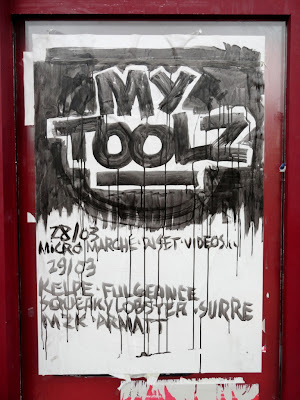 MY
TOOLZ
28/03
MICRO MARCHE · DJ SET · VIDEOS...
29/03
KELPE · FULGEANCE
SQUEAKY LOBSTER · SURRE
MZK ARNATT